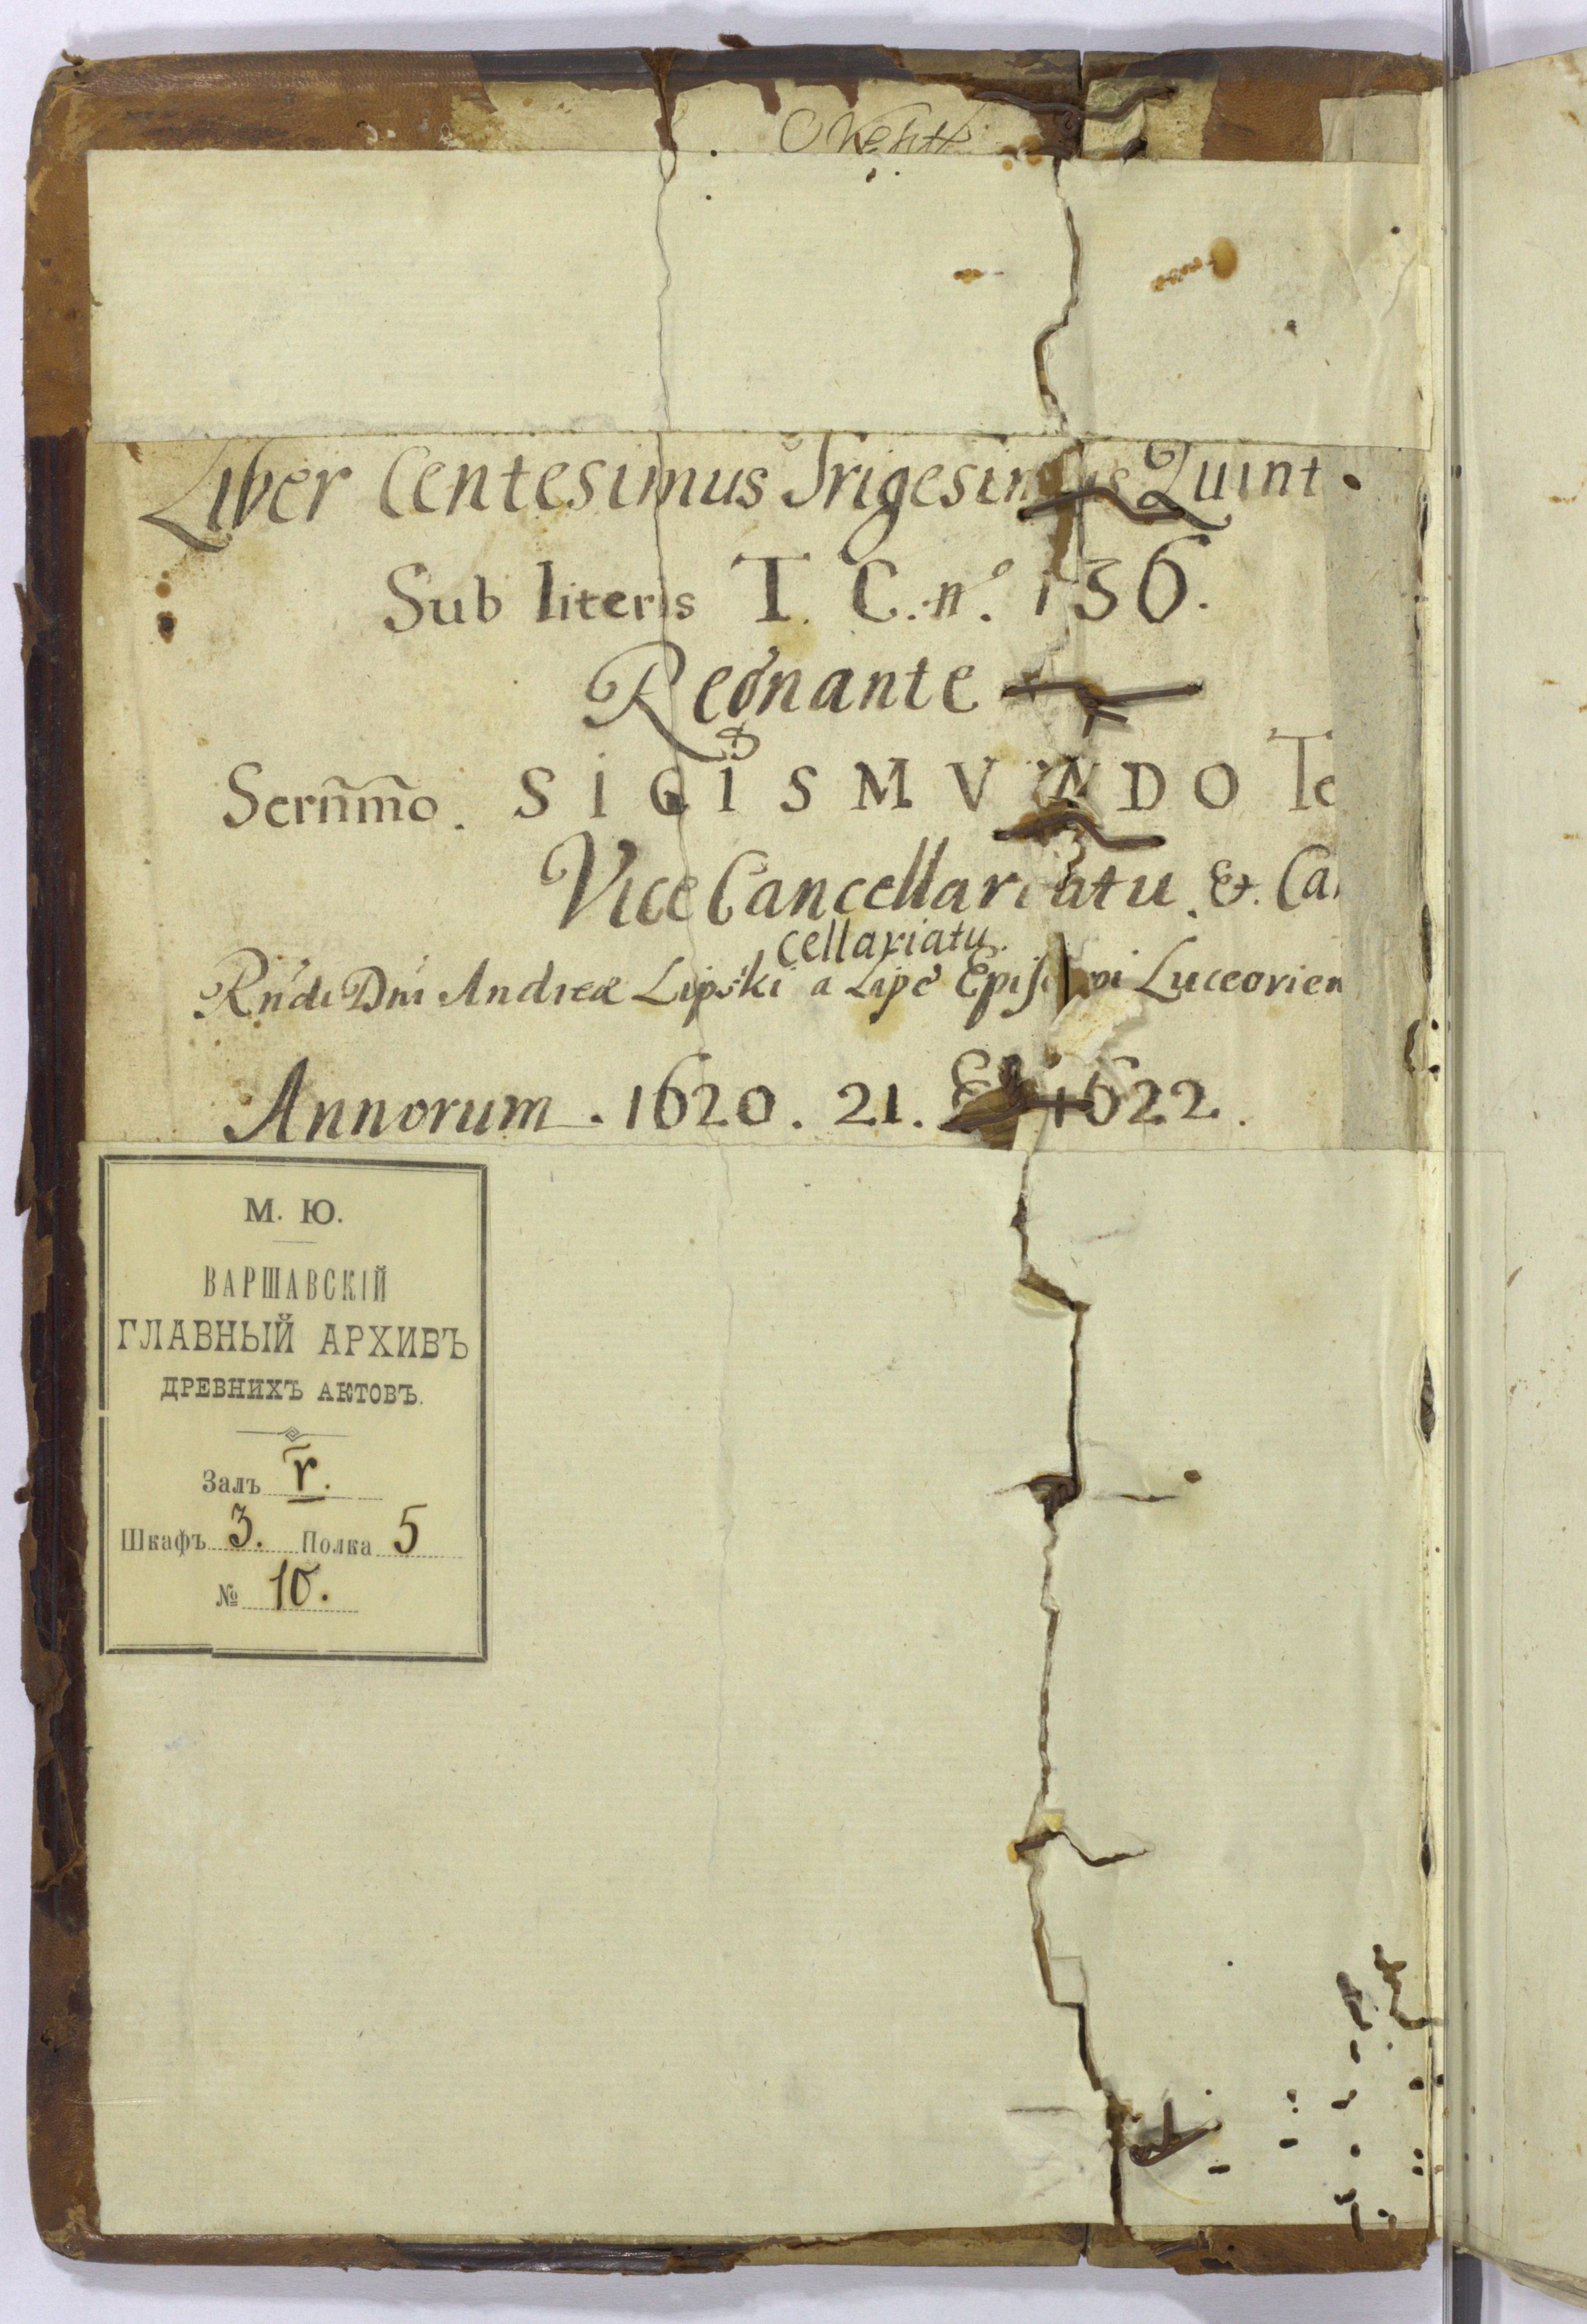 Liber Centesimus Trigesimus Quint
Sub literis T. C. nº. 136.
Regnante
Serñmo. SIGISMVNDO Te
Vice Cancellariatu. Et. Can
cellariatu.
Rńdi Dńi Andreæ Lipski a Lipe Episcopi Luceorien
Annorum. 1620. 21. Et 1622.
М. Ю.
ВАРШАВСКІЙ
ГЛАВНЫЙ АРХИВЪ
ДРЕВНИХЪ АКТОВЪ.
Залъ r.
Шкафъ 3. Полка 5
№ 10.